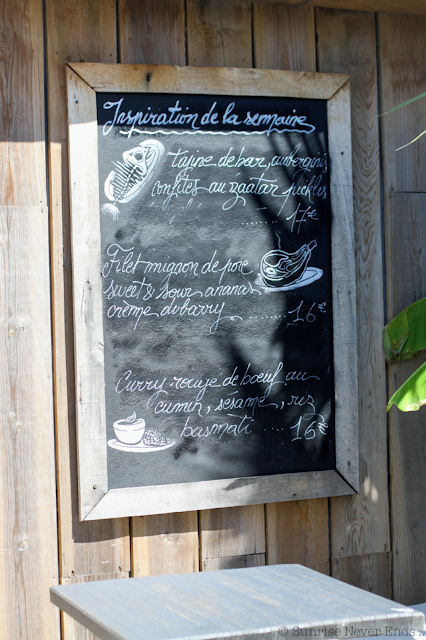 Inspiration de la semaine
tajine de bar, aubergines
confites au zaatar pickles
" " " ........ 17€
Filet mignon de porc
sweet & sour ananas
crème dubarry ......... 16€
Curry rouge de bœuf au
Cumin, sesame, riz
basmati .... 16€
© Sunrise Never Ends...